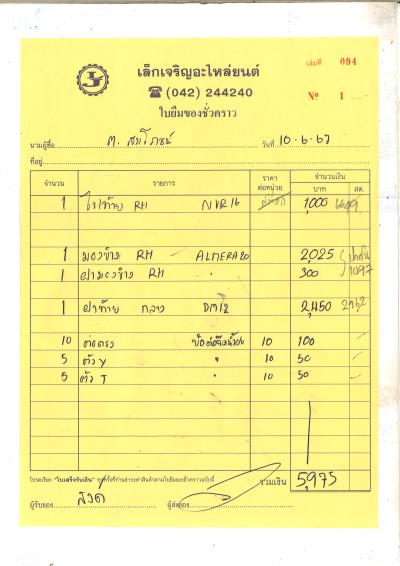 เล็กเจริญอะไหล่ยนต์
เล่มที่ 094
☎ (042) 244240
№ 1
ใบยืมของชั่วคราว
นามผู้ซื้อ วันที่ 10-6-67
ที่อยู่
จำนวน รายการ ราคาต่อหน่วย จำนวนเงิน
บาท สต.
1 ไฟท้าย RH NVR16 1,000
1 มองข้าง RH ALMERA20 2,025
1 ฝามองข้าง RH " 300 1097
1 ฝาท้าย กลาง DM12 2,450
10 ต่อตรง 10 100
5 ตัว Y " 10 50
5 ตัว T " 10 50
รวมเงิน 5,975
โปรดเรียก "ใบเสร็จรับเงิน" ทุกครั้งที่ท่านชำระค่าสินค้าตามใบยืมของชั่วคราวฉบับนี้
ผู้รับของ ผู้ส่งของ